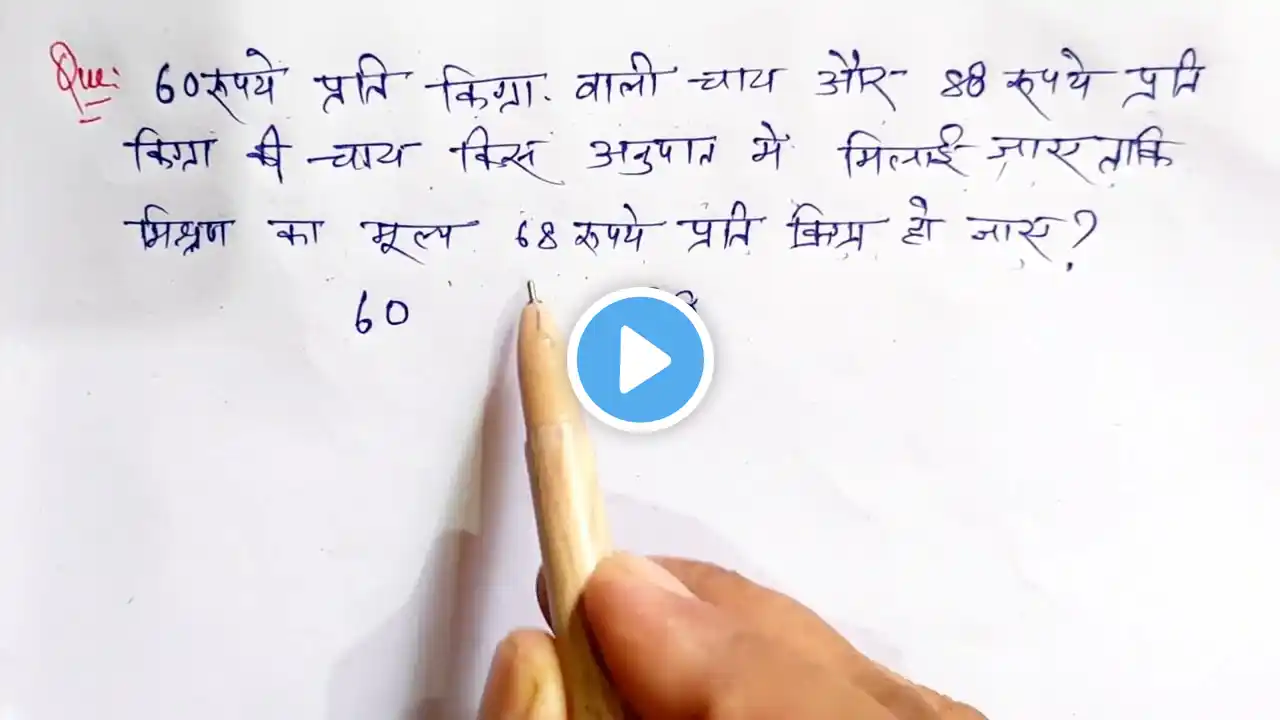 Que: 60 रूपये प्रति किग्रा. वाली चाय और 88 रूपये प्रति
किग्रा की चाय किस अनुपात में मिलाई जाए ताकि
मिश्रण का मूल्य 68 रूपये प्रति किग्रा हो जाए?
60